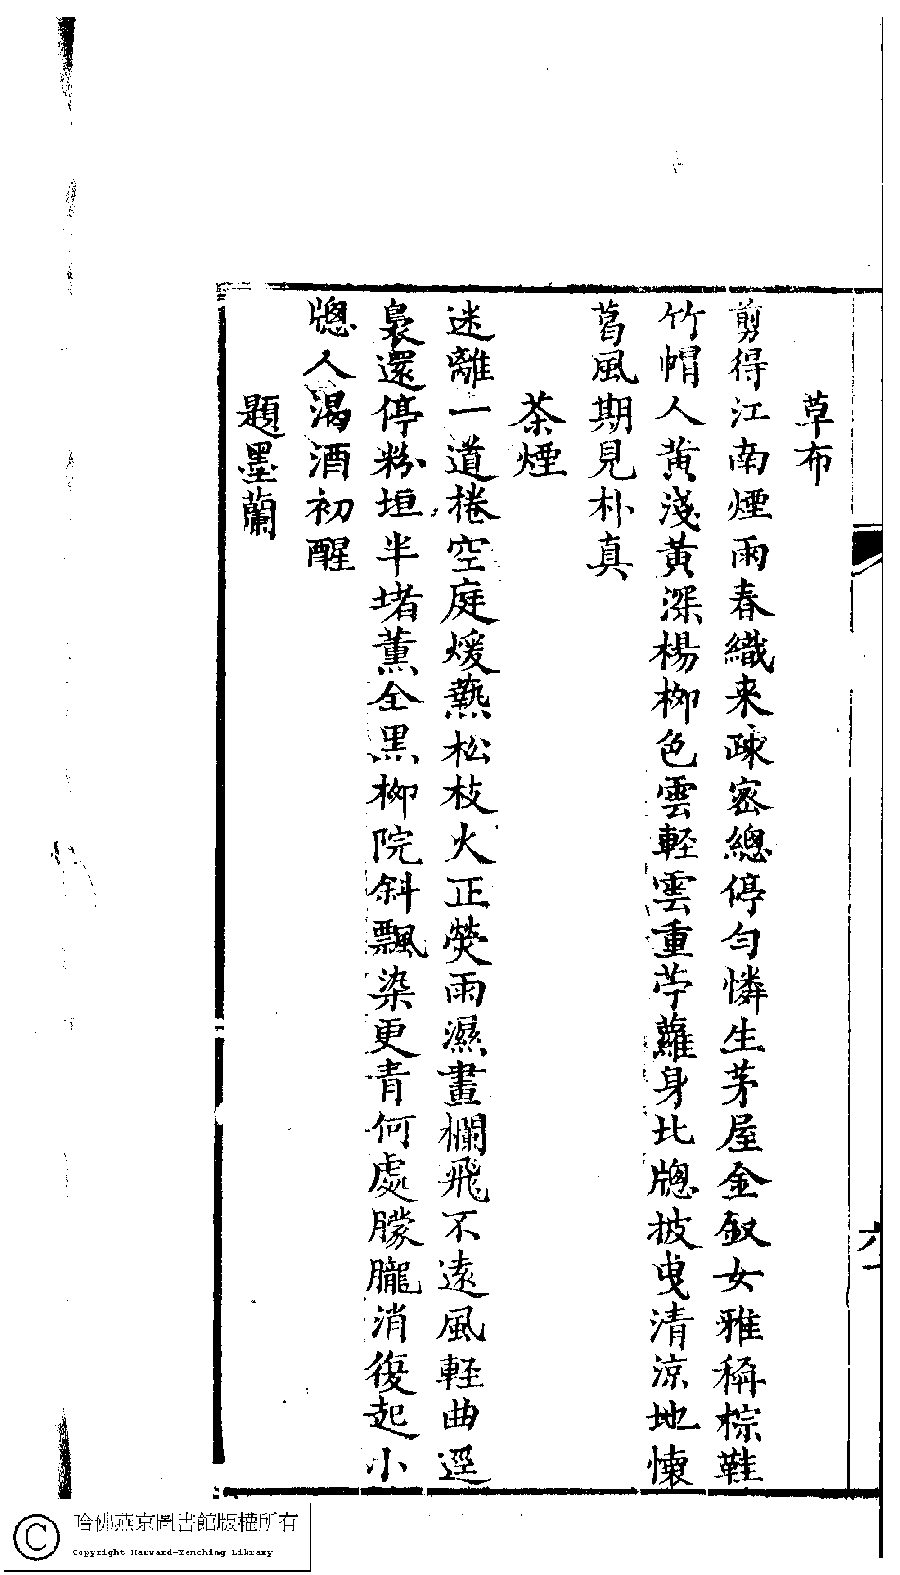 草布
剪得江南煙雨春織来疎宻總停勻憐生茅屋金釵女雅稱棕鞋
竹帽人黄淺黄深楊栁色雲輕雲重苧蘿身比牕披曳清涼地懐
葛風期見朴真
茶煙
迷離一道捲空庭煖爇松枝火正熒雨濕畫欄飛不逺風輕曲逕
裊還停粉垣半堵薰全黑栁院斜飄染更青何處朦朧消復起小
牕人渴酒初醒
題墨蘭
六
哈佛燕京圖書館版權所有
Copyright Harvard-Yenching Library